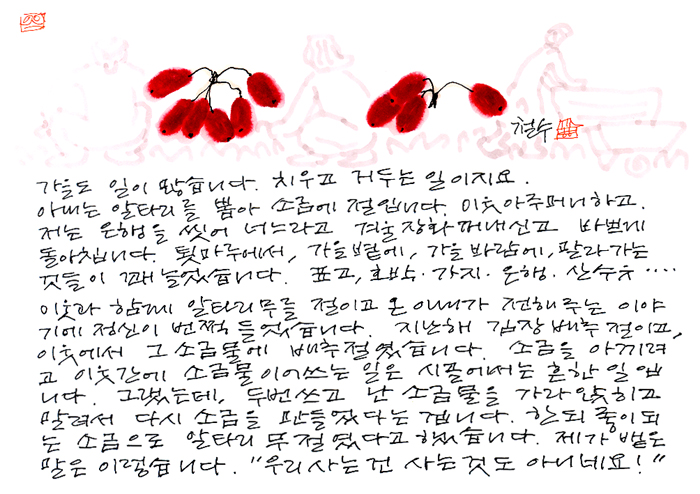 철수
가을도 일이 많습니다. 치우고 거두는 일이지요.
아내는 알타리를 뽑아 소금에 절입니다. 이웃아주머니하고.
저는 은행을 씻어 너느라고 겨울장화꺼내신고 바쁘게
돌아칩니다. 툇마루에서, 가을볕에, 가을바람에, 말라가는
것들이 꽤 늘었습니다. 표고, 호박·가지·은행·산수유····
이웃과 함께 알타리무를 절이고 온 아내가 전해주는 이야
기에 정신이 번쩍 들었습니다. 지난해 김장배추 절이고,
이웃에서 그 소금물에 배추절였습니다. 소금을 아끼려
고 이웃간에 소금물이어쓰는 일은 시골에서는 흔한 일입
니다. 그랬는데, 두번쓰고 난 소금물을 가라앉히고
말려서 다시 소금을 만들었다는 겁니다. 한되 좋이되
는 소금으로 알타리무절였다고 했습니다. 제가 뱉은
말은 이랬습니다. "우리사는건 사는것도 아니네요!"